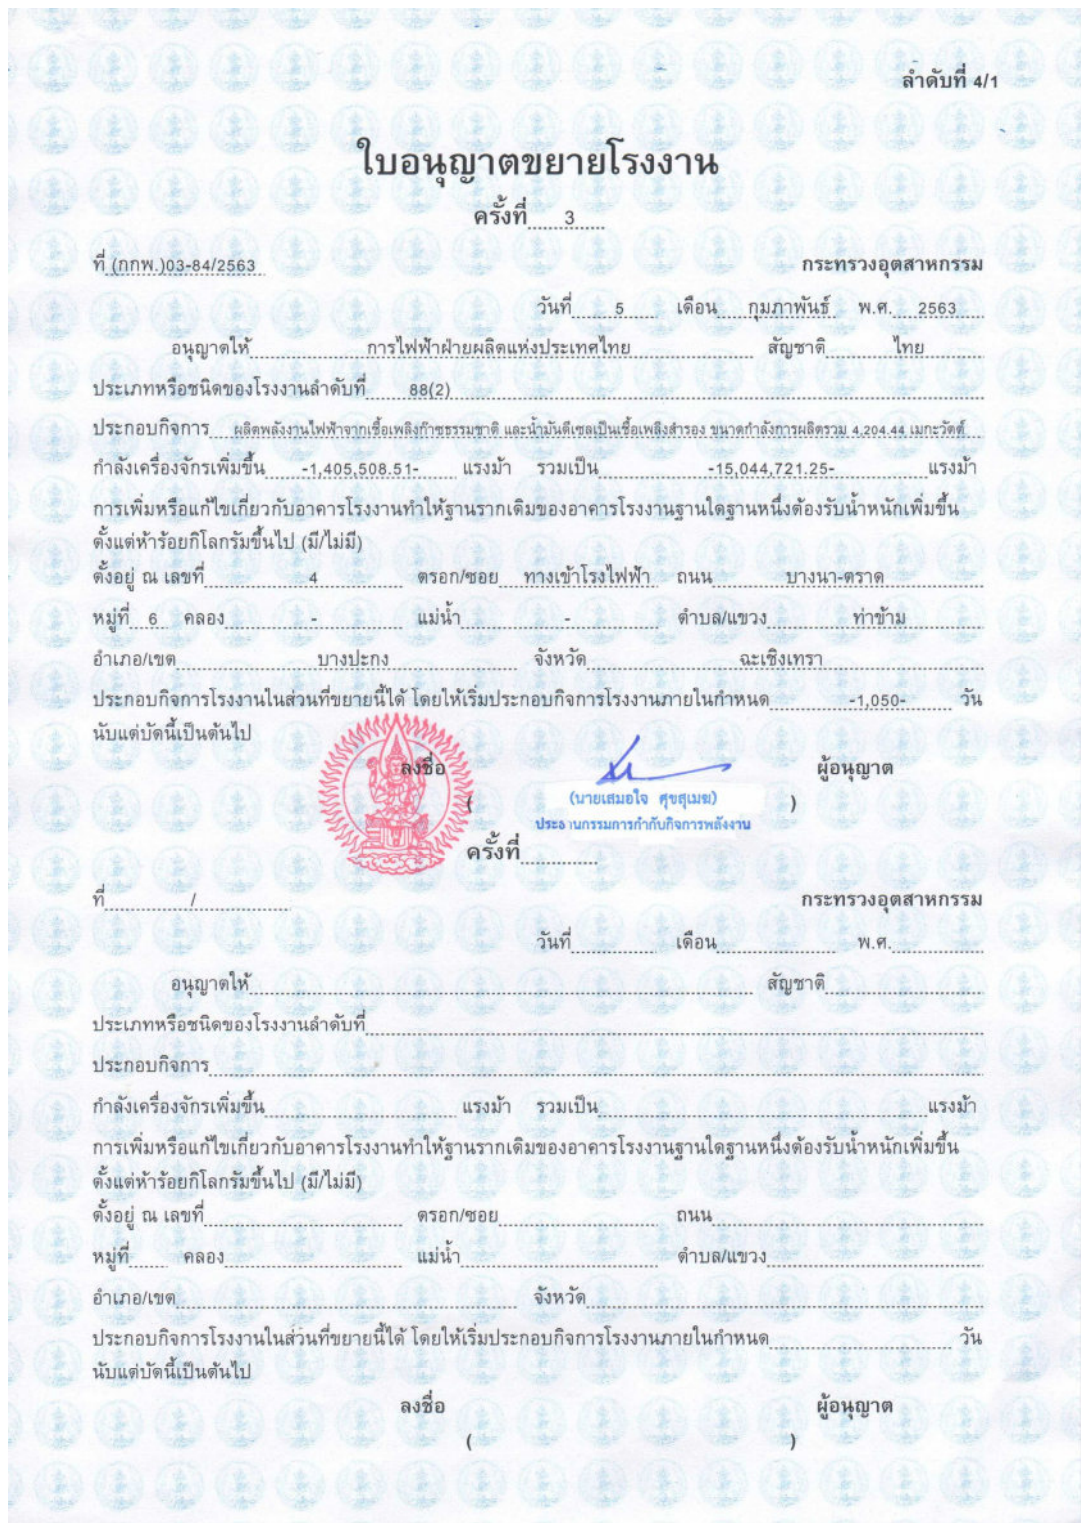 ลำดับที่ 4/1
ใบอนุญาตขยายโรงงาน
ครั้งที่ 3
ที่ (กกพ.)03-84/2563 กระทรวงอุตสาหกรรม
วันที่ 5 เดือน กุมภาพันธ์ พ.ศ. 2563
อนุญาตให้ การไฟฟ้าฝ่ายผลิตแห่งประเทศไทย สัญชาติ ไทย
ประเภทหรือชนิดของโรงงานลำดับที่ 88(2)
ประกอบกิจการ ผลิตพลังงานไฟฟ้าจากเชื้อเพลิงก๊าซธรรมชาติ และน้ำมันดีเซลเป็นเชื้อเพลิงสำรอง ขนาดกำลังการผลิตรวม 4,204.44 เมกะวัตต์
กำลังเครื่องจักรเพิ่มขึ้น -1,405,508.51- แรงม้า รวมเป็น -15,044,721.25- แรงม้า
การเพิ่มหรือแก้ไขเกี่ยวกับอาคารโรงงานทำให้ฐานรากเดิมของอาคารโรงงานฐานใดฐานหนึ่งต้องรับน้ำหนักเพิ่มขึ้น
ตั้งแต่ห้าร้อยกิโลกรัมขึ้นไป (มี/ไม่มี)
ตั้งอยู่ ณ เลขที่ 4 ตรอก/ซอย ทางเข้าโรงไฟฟ้า ถนน บางนา-ตราด
หมู่ที่ 6 คลอง - แม่น้ำ - ตำบล/แขวง ท่าข้าม
อำเภอ/เขต บางปะกง จังหวัด ฉะเชิงเทรา
ประกอบกิจการโรงงานในส่วนที่ขยายนี้ได้ โดยให้เริ่มประกอบกิจการโรงงานภายในกำหนด -1,050- วัน
นับแต่บัดนี้เป็นต้นไป
ลงชื่อ ผู้อนุญาต
( (นายเสมอใจ ศุขสุเมฆ) )
ประธานกรรมการกำกับกิจการพลังงาน
ครั้งที่
ที่ / กระทรวงอุตสาหกรรม
วันที่ เดือน พ.ศ.
อนุญาตให้ สัญชาติ
ประเภทหรือชนิดของโรงงานลำดับที่
ประกอบกิจการ
กำลังเครื่องจักรเพิ่มขึ้น แรงม้า รวมเป็น แรงม้า
การเพิ่มหรือแก้ไขเกี่ยวกับอาคารโรงงานทำให้ฐานรากเดิมของอาคารโรงงานฐานใดฐานหนึ่งต้องรับน้ำหนักเพิ่มขึ้น
ตั้งแต่ห้าร้อยกิโลกรัมขึ้นไป (มี/ไม่มี)
ตั้งอยู่ ณ เลขที่ ตรอก/ซอย ถนน
หมู่ที่ คลอง แม่น้ำ ตำบล/แขวง
อำเภอ/เขต จังหวัด
ประกอบกิจการโรงงานในส่วนที่ขยายนี้ได้ โดยให้เริ่มประกอบกิจการโรงงานภายในกำหนด วัน
นับแต่บัดนี้เป็นต้นไป
ลงชื่อ ผู้อนุญาต
( )